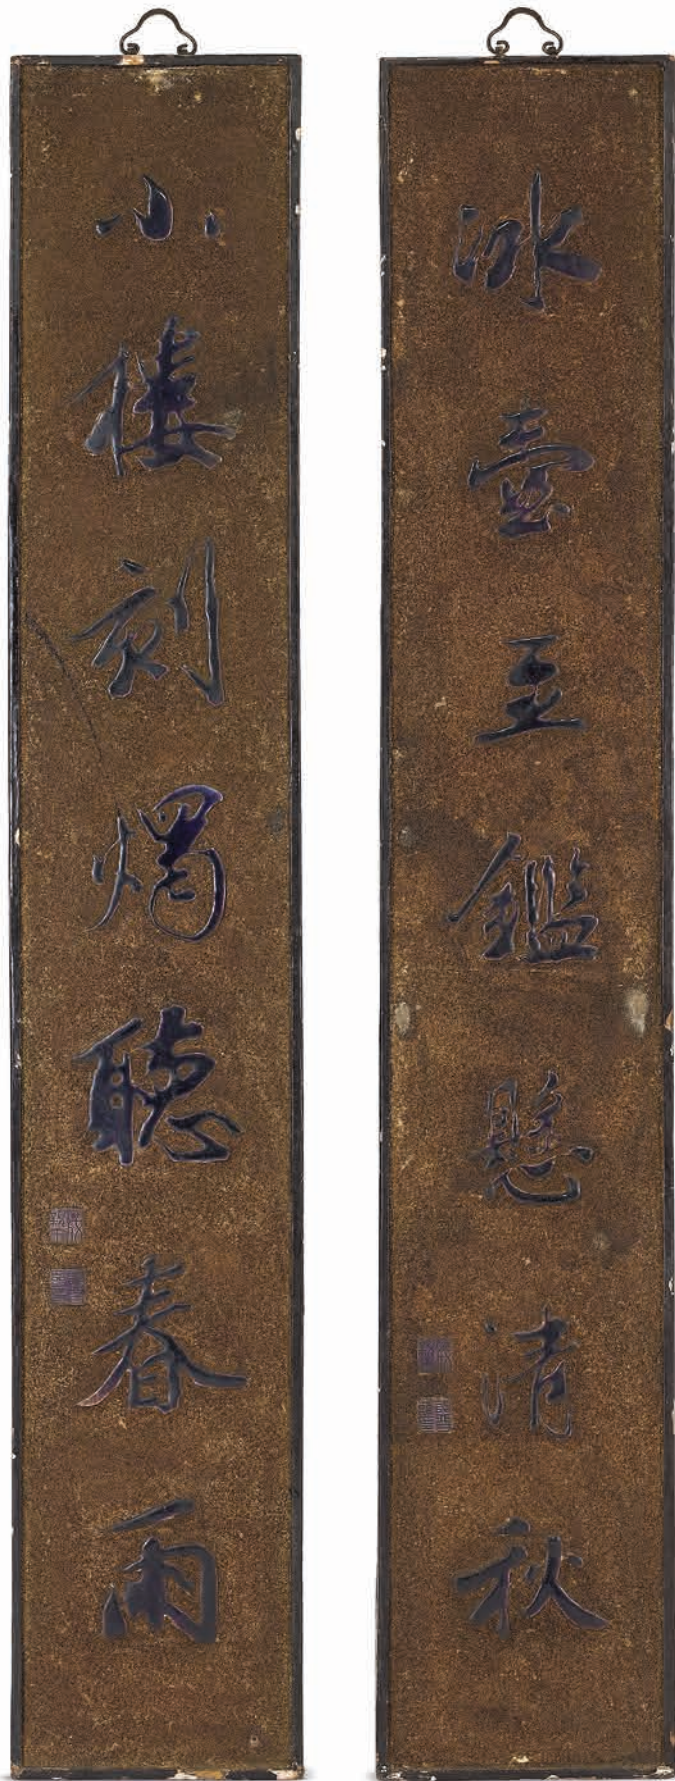 冰壺玉鑑懸清秋
小樓刻燭聽春雨